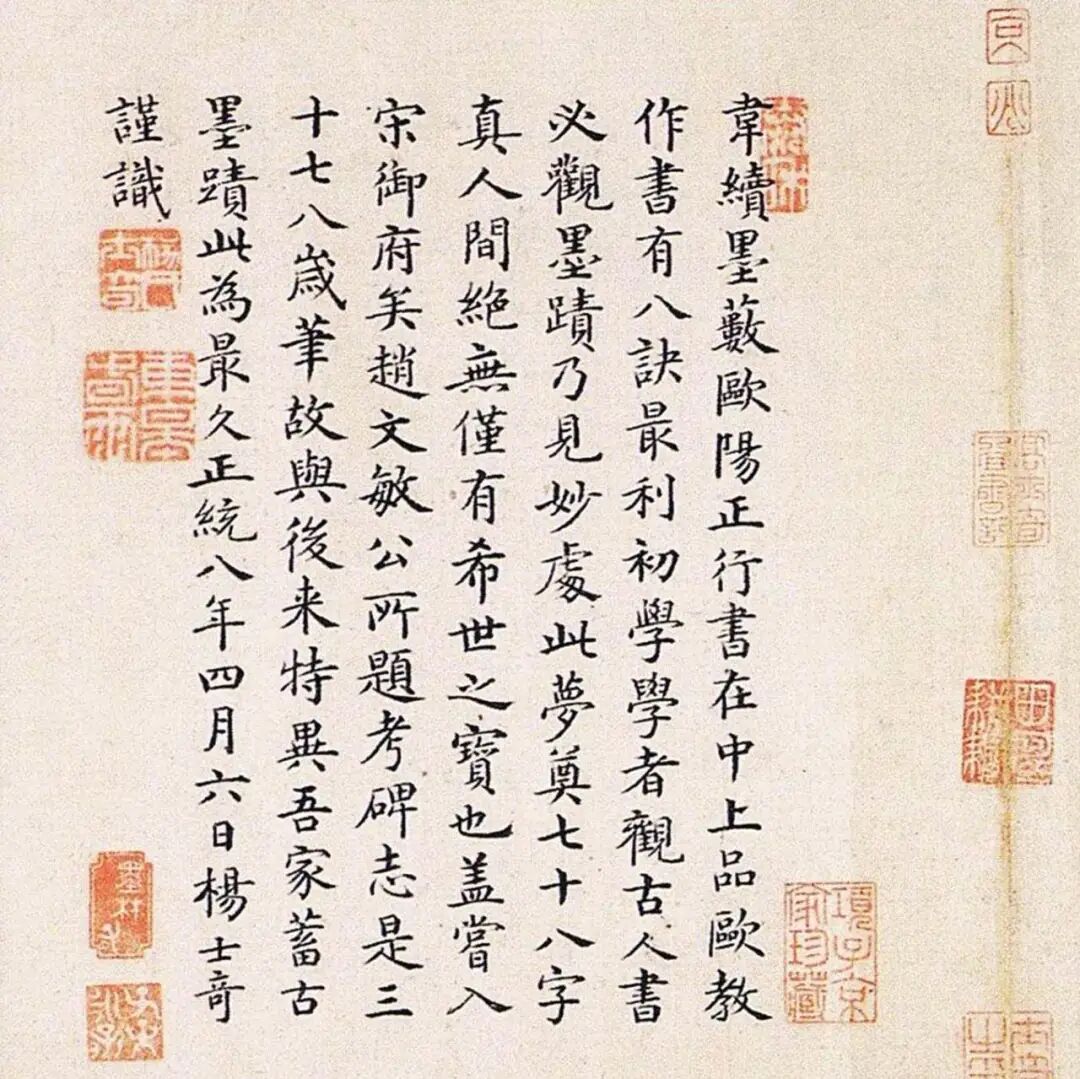 韋續墨藪歐陽正行書在中上品歐教
作書有八訣最利初學學者觀古人書
必觀墨蹟乃見妙處此夢奠七十八字
真人間絕無僅有希世之寶也盖嘗入
宋御府矣趙文敏公所題考碑志是三
十七八歲筆故與後来特異吾家蓄古
墨蹟此為最久正統八年四月六日楊士竒
謹識
項子京
家珍藏